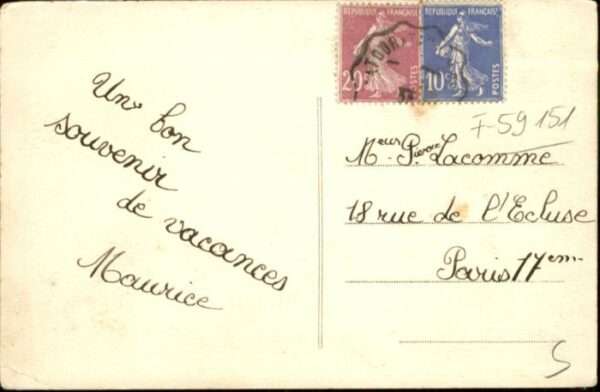 Un bon
souvenir
de vacances
Maurice
REPUBLIQUE FRANÇAISE
20c
POSTES
REPUBLIQUE FRANÇAISE
10c
POSTES
F-59151
Meur Pierre Lacomme
18 rue de l'Ecluse
Paris 17em
S